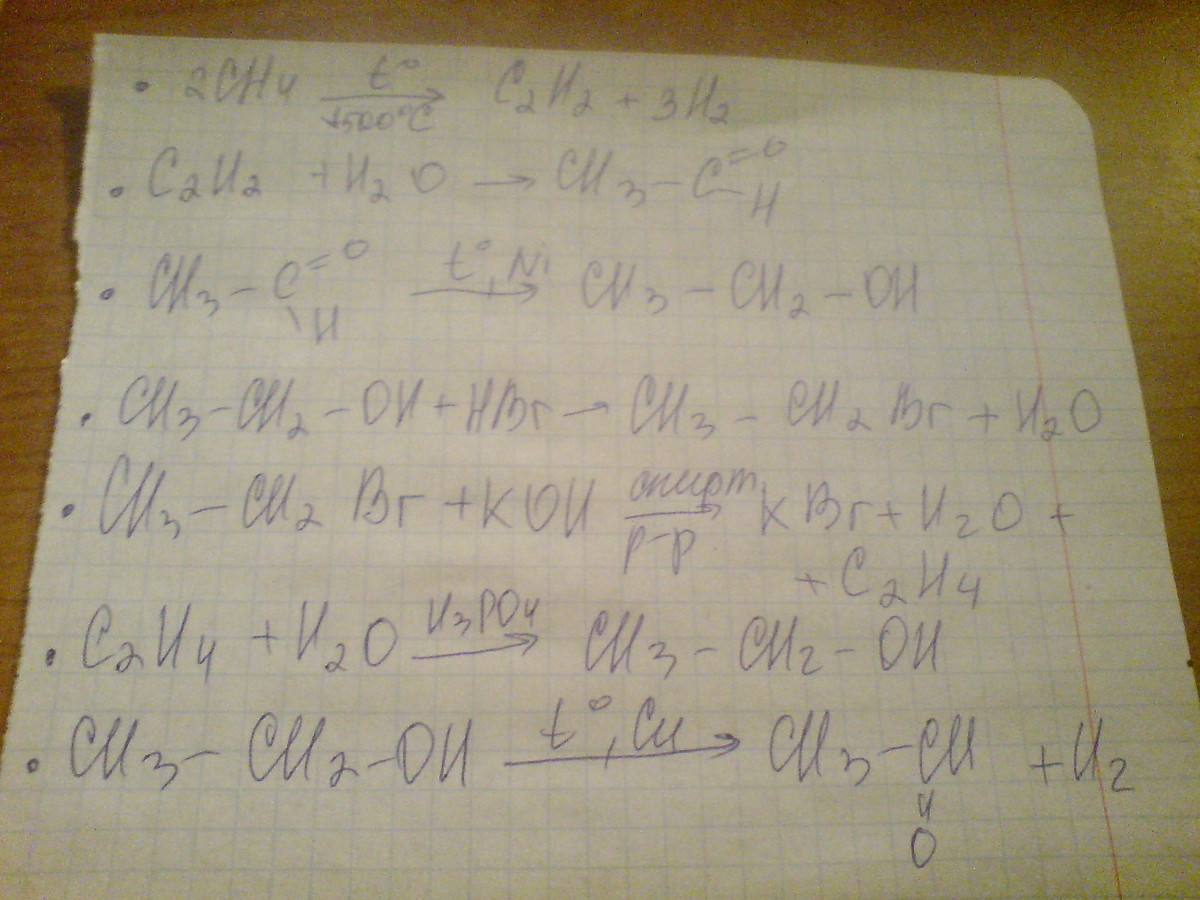 • 2CH4 t° → 1500°C C2H2 + 3H2
• C2H2 + H2O → CH3 - C =O -H
• CH3 - C =O \H t°, Ni → CH3 - CH2 - OH
• CH3 - CH2 - OH + HBr → CH3 - CH2 Br + H2O
• CH3 - CH2 Br + KOH спирт → р-р. KBr + H2O +
+ C2H4
• C2H4 + H2O H3PO4 → CH3 - CH2 - OH
• CH3 - CH2 - OH t°, Cu → CH3 - CH + H2
"
O